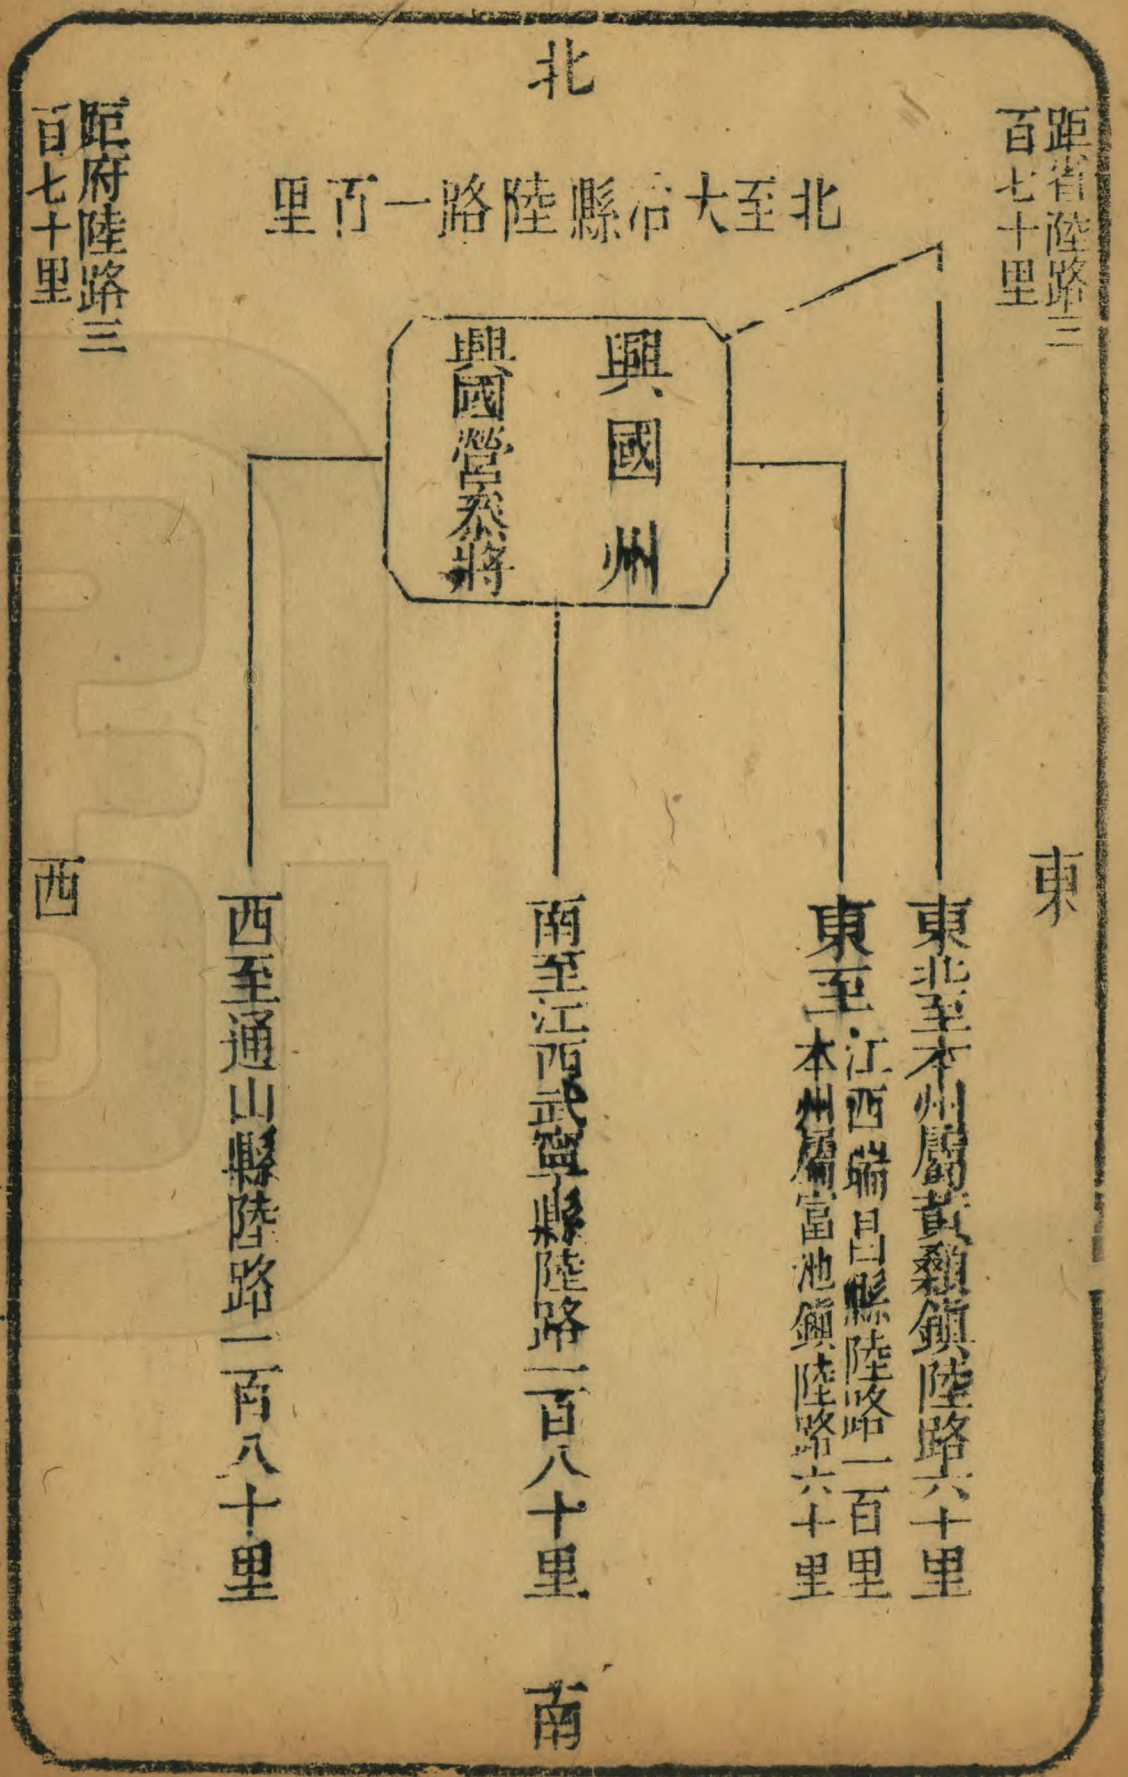 北
距省陸路三
百七十里
北至大冶縣陸路一百里
距府陸路三
百七十里
興國州
興國營叅將
東
東北至本州屬黃顙鎮陸路六十里
東至
江西瑞昌縣陸路一百里
本州屬富池鎮陸路六十里
南至江西武寧縣陸路一百八十里
西至通山縣陸路一百八十里
西
南